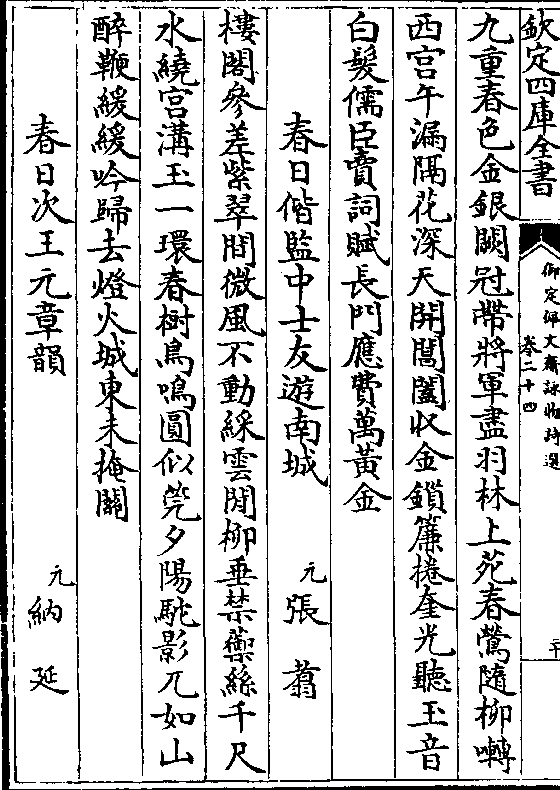 欽定四庫全書
御定佩文齋詠物詩選
卷二十四
二十
九重春色金銀闕冠帶將軍盡羽林上苑春鶯隨柳囀
西宮午漏隔花深天開閶闔收金鎖簾捲奎光聽玉音
白髮儒臣賣詞賦長門應費萬黃金
春日偕監中士友遊南城 元張翥
樓閣參差紫翠間微風不動綵雲閒柳垂禁籞絲千尺
水繞宮溝玉一環春樹鳥鳴圓似筦夕陽駝影兀如山
醉鞭緩緩吟歸去燈火城東未掩關
春日次王元章韻 元納延